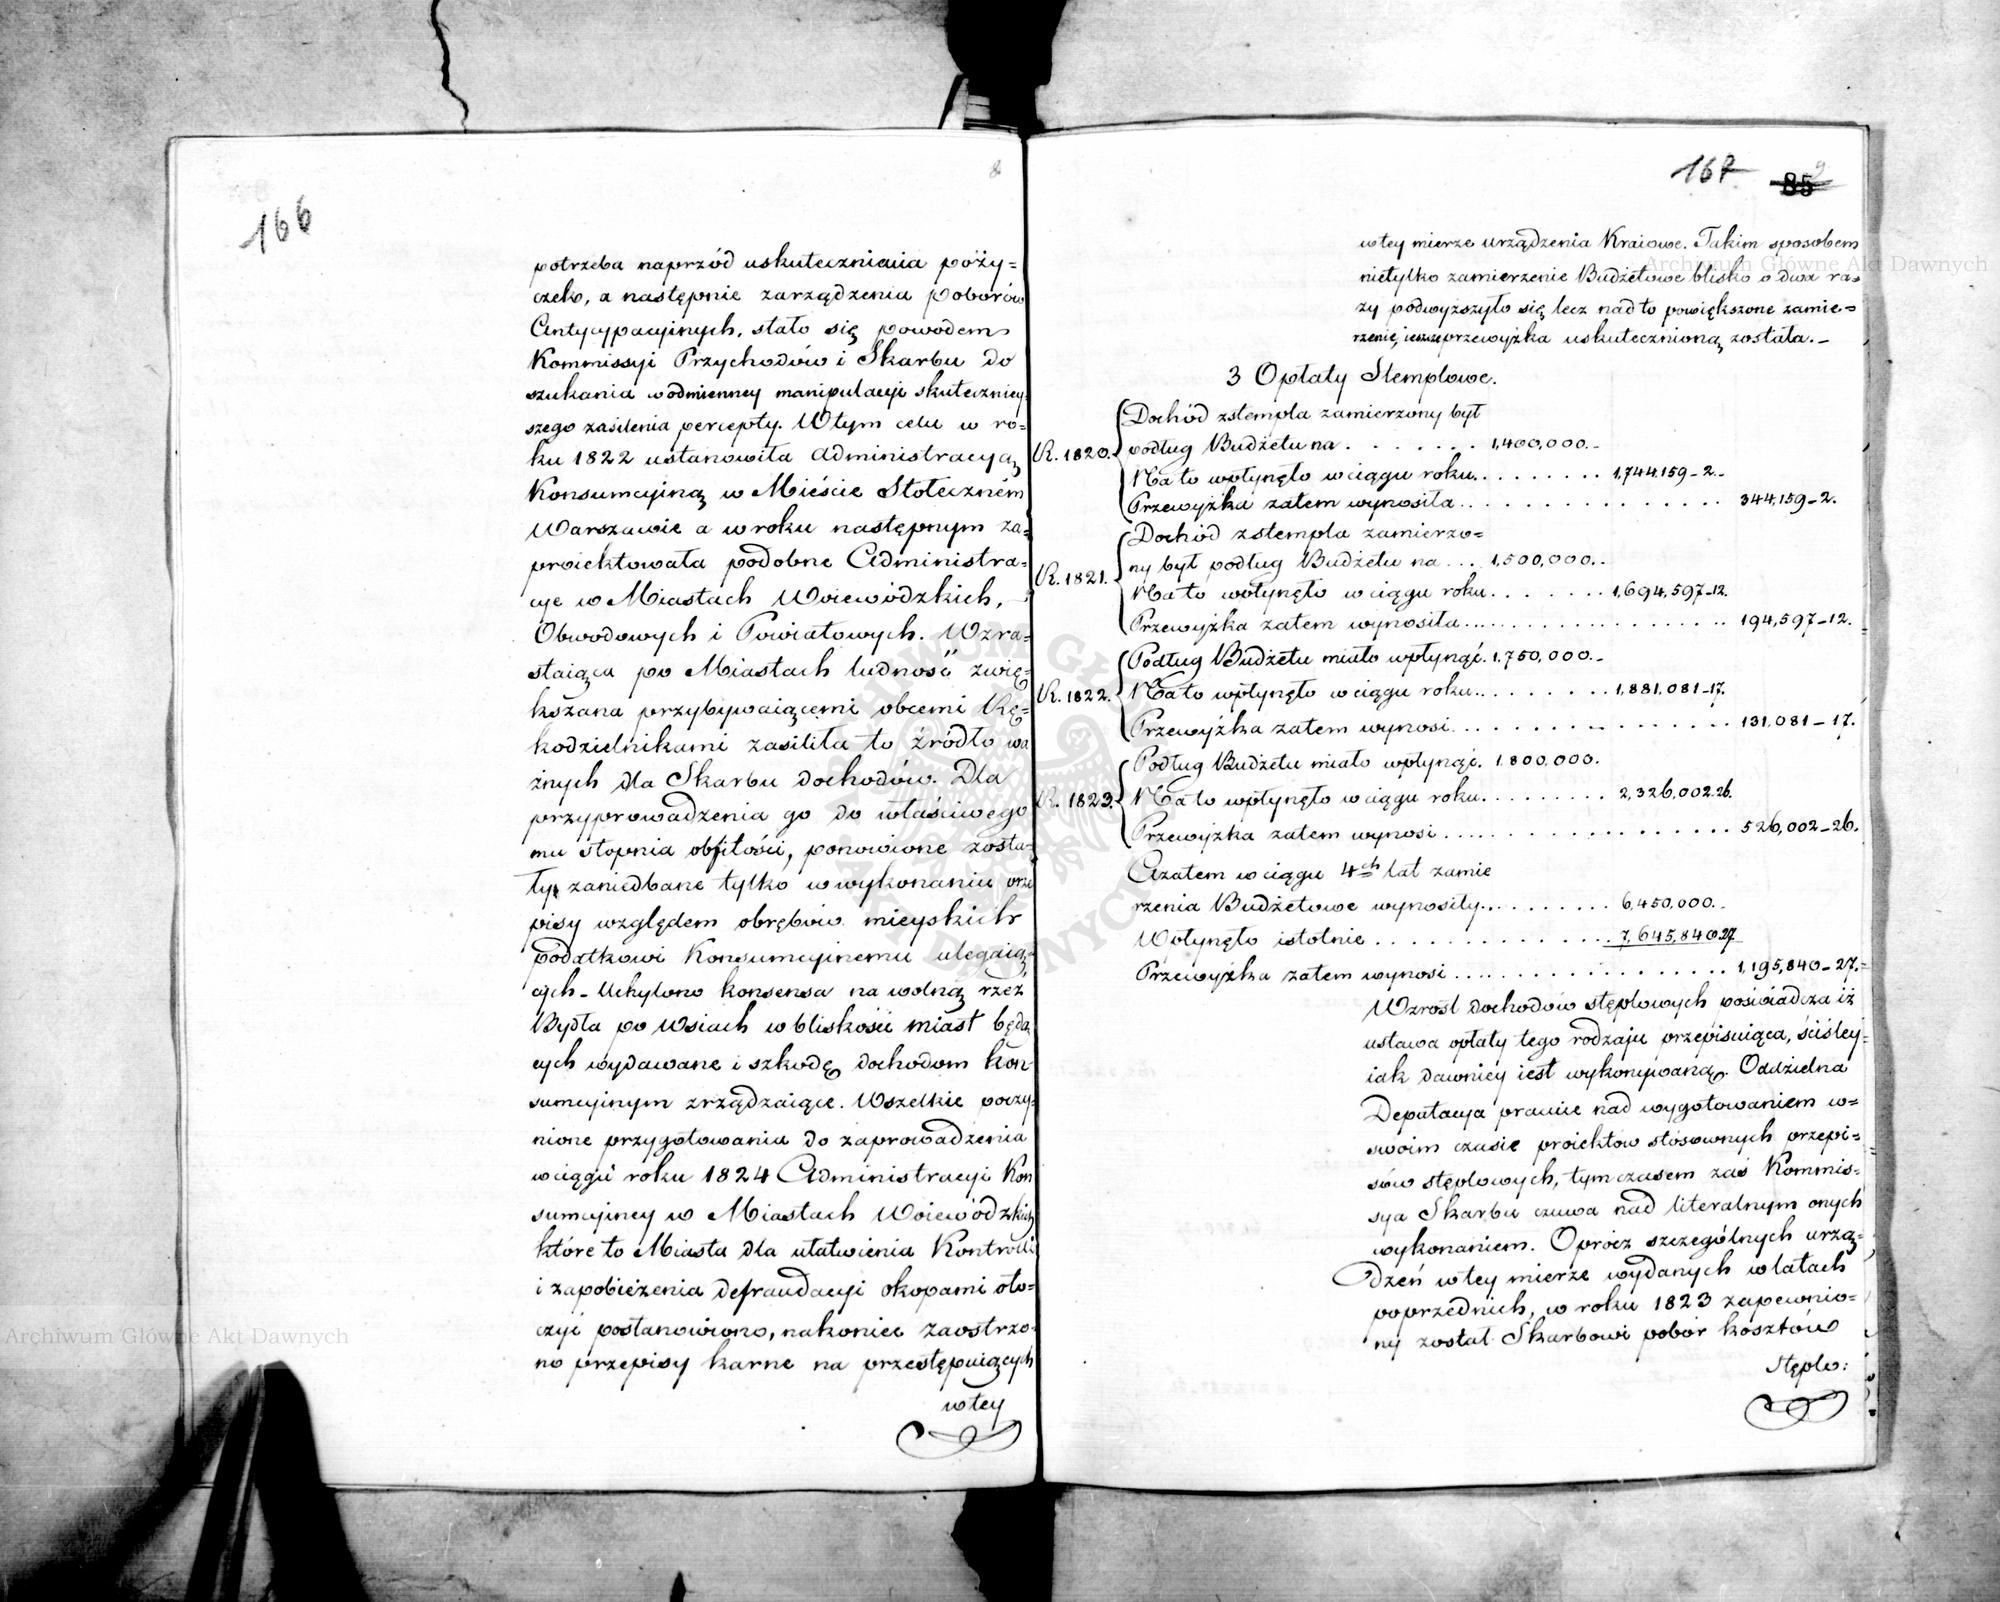 8
166
potrzeba naprzód uskuteczniania poży=
czek, a następnie zarządzenia poborów
Antycypacyjnych, stało się powodem
Kommissyi Przychodów i Skarbu do
szukania w odmienney manipulacyi skuteczniey=
szego zasilenia percepty. W tym celu w ro=
ku 1822 ustanowiła Administracyą
Konsumcyiną w Mieście Stołeczném
Warszawie a w roku następnym za=
proiektowała podobne Administra=
cye w Miastach Woiewódzkich,
Obwodowych i Powiatowych. Wzra=
staiąca po Miastach ludność zwię=
kszana przybywaiącemi obcemi Rę=
kodzielnikami zasiliła to źródło wa
żnych dla Skarbu dochodów. Dla
przyprowadzenia go do właściwego
mu stopnia obfitości, ponowione zosta=
ły zaniedbane tylko w wykonaniu prze
pisy względem obrębów mieyskich
podatkowi Konsumcyinemu ulegaią=
cych - Uchylono konsensa na wolną rzeź
Bydła po Wsiach w bliskości miast będą
cych wydawane i szkodę dochodom kon
sumcyinym zrządzaiące. Wszelkie poczy=
nione przygotowania do zaprowadzenia
w ciągu roku 1824 Administracyi Kon
sumcyiney w Miastach Woiewódzkich
które to Miasta dla ułatwienia Kontrolli
i zapobieżenia defraudacyi okopami oto=
czyć postanowiono, nakoniec zaostrzo=
no przepisy karne na przestępuiących
w tey
167 85 9
w tey mierze urządzenia Kraiowe. Takim sposobem
nietylko zamierzenie Budżetowe blisko o dwa ra=
zy podwyższyło się lecz nad to powiększone zamie=
rzenie, ieszcze przewyżka uskutecznioną została. -
3 Opłaty Stemplowe.
Dochód z stempla zamierzony był
R. 1820. podług Budżetu na . . . . . . . 1,400,000.-
Na to wpłynęło w ciągu roku . . . . . . . . 1,744,159-2.-
Przewyżka zatem wynosiła . . . . . . . . . . . . . . . 344,159-2.
Dochód z stempla zamierzo=
ny był podług Budżetu na . . . 1,500,000..
R. 1821.
Na to wpłynęło w ciągu roku . . . . . . . 1,694,597-12.
Przewyżka zatem wynosiła . . . . . . . . . . . . . . . 194,597-12.
Podług Budżetu miało wpłynąć. 1,750,000.-
R. 1822. Na to wpłynęło w ciągu roku . . . . . . . . 1,881,081-17.
Przewyżka zatem wynosi . . . . . . . . . . . . . . . 131,081-17.
Podług Budżetu miało wpłynąć. 1,800,000.
R. 1823. Na to wpłynęło w ciągu roku . . . . . . . . . 2,326,002.26.
Przewyżka zatem wynosi . . . . . . . . . . . . . . . . 526,002-26.
A zatem w ciągu 4ch lat zamie
rzenia Budżetowe wynosiły . . . . . . . . . 6,450,000.-
Wpłynęło istotnie . . . . . . . . . . . . . . 7,645,840 27
Przewyżka zatem wynosi . . . . . . . . . . . . . . . . 1,195,840-27.
Wzrost dochodów stęplowych poświadcza iż
ustawa opłaty tego rodzaju przepisuiąca, ściśley
iak dawniey iest wykonywaną. Oddzielna
Deputacya pracuie nad wygotowaniem w=
swoim czasie proiektow stósownych przepi=
sów stęplowych, tymczasem zaś Kommis=
sya Skarbu czuwa nad literalnym onych
wykonaniem. Oprócz szczególnych urzą=
dzeń w tey mierze wydanych w latach
poprzednich, w roku 1823 zapewnio=
ny został Skarbowi pobór kosztów
stęplo:
Archiwum Główne Akt Dawnych
Archiwum Główne Akt Dawnych